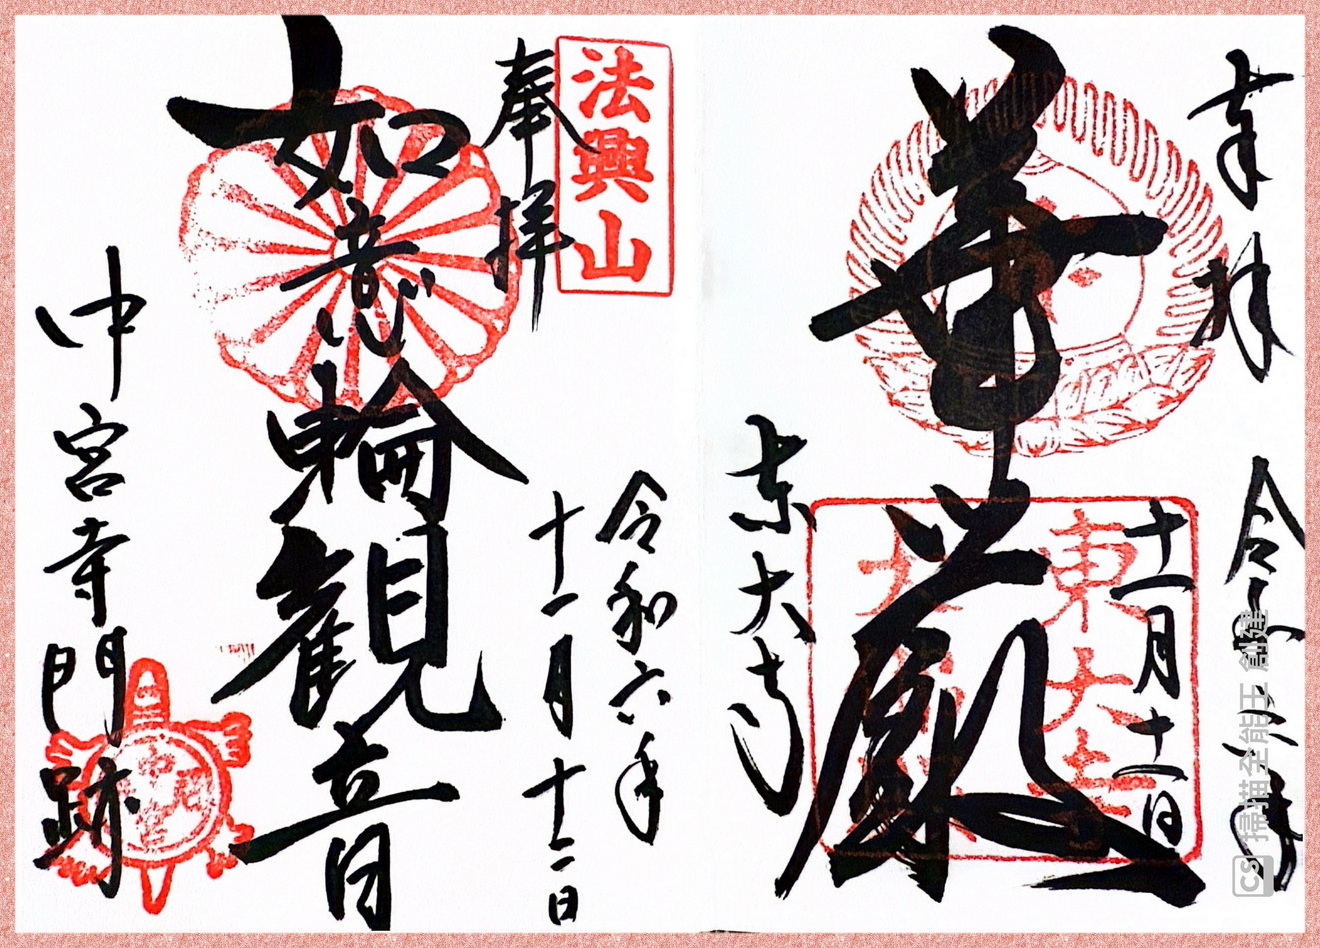 奉拝
令和六年
十一月十一日
華厳
東大寺
東大寺
法興山
奉拝
令和六年
十一月十二日
如意輪観音
中宮寺門跡
CS 掃描全能王 創建